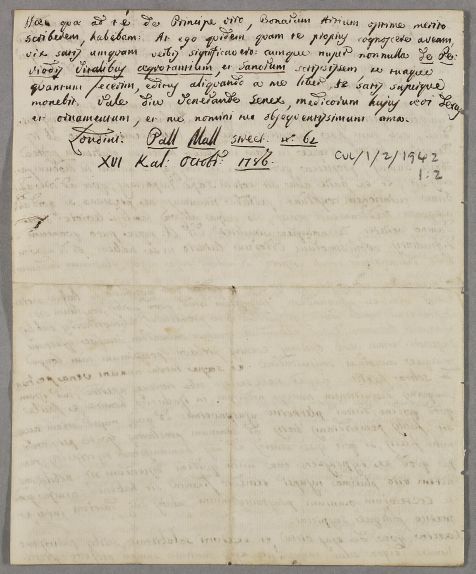 Haec qua ad te de Principe viro, Bonarum Artium optime merito
scriberem, habebam. At ego quidem quam te propius cognoscere aveam,
vix satis unquam verbis significavero: cumque nuper nonnulla de Pe-
riodis Vitalibus aegrotantium, et Sanorum scripsissem, te magne
quantum fecerim, editus aliquando a me liber te satis superque
monebit. Vale diu Venerande Senex, medicorum hujus aevi Decus
et ornamentum, et me nomini tuo obsequentissimum ama.
Londini. Pall Mall street. n. 62
XVI Kal: Octobr: 1786.
CUL/1/2/1942
1:2